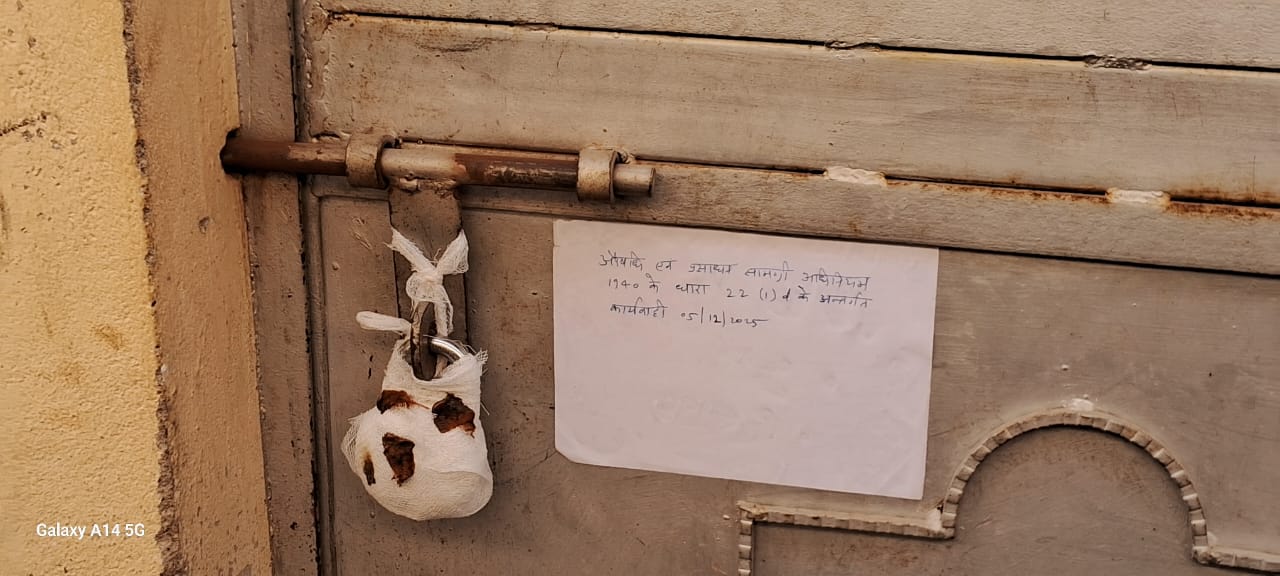 औषधि एवं प्रसाधन सामग्री अधिनियम
1940 के धारा 22 (1) d के अन्तर्गत
कार्यवाही 05/12/2025
Galaxy A14 5G